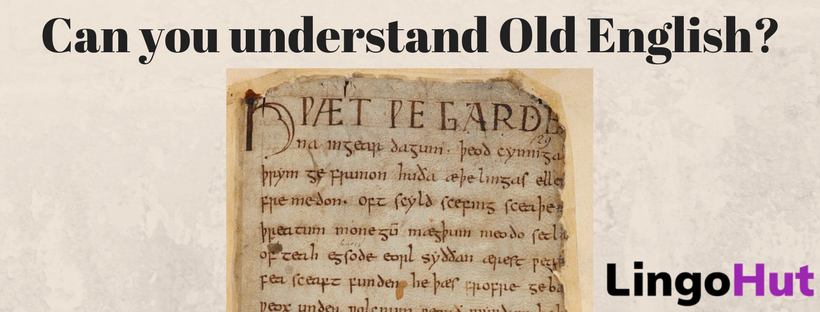 Can you understand Old English?
HǷÆT ǷE GARDE
na ingear dagum. þeod cyninga
þrym ge frunon huða æþelingas elle
fremedon. oft scyld scefing sceaþe
þreatum monegū mægþum meodo setla
of teah egsode eorl syððan ærest
fea sceaft funden he þæs frofre geba
ƿeox under ƿolcnum
LingoHut